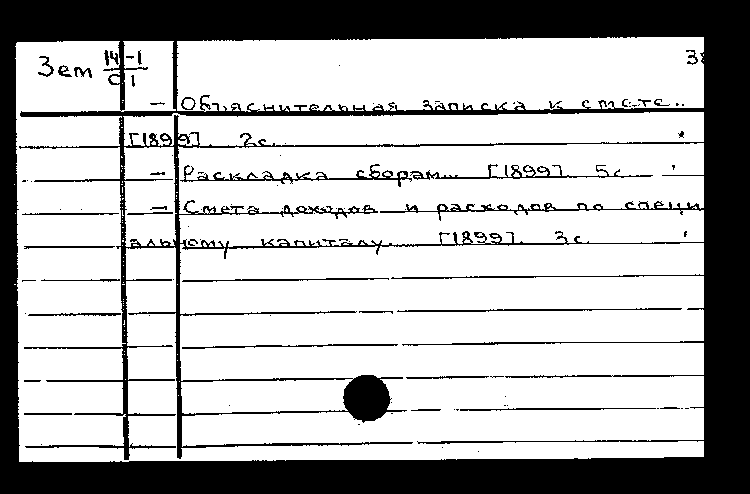 Зем 14-1 38
С 1
— Объяснительная записка к смете..
[1899]. 2с.
— Раскладка сборам... [1899]. 5с
— Смета доходов и расходов по специ
альному капиталу. [1899]. 3с.